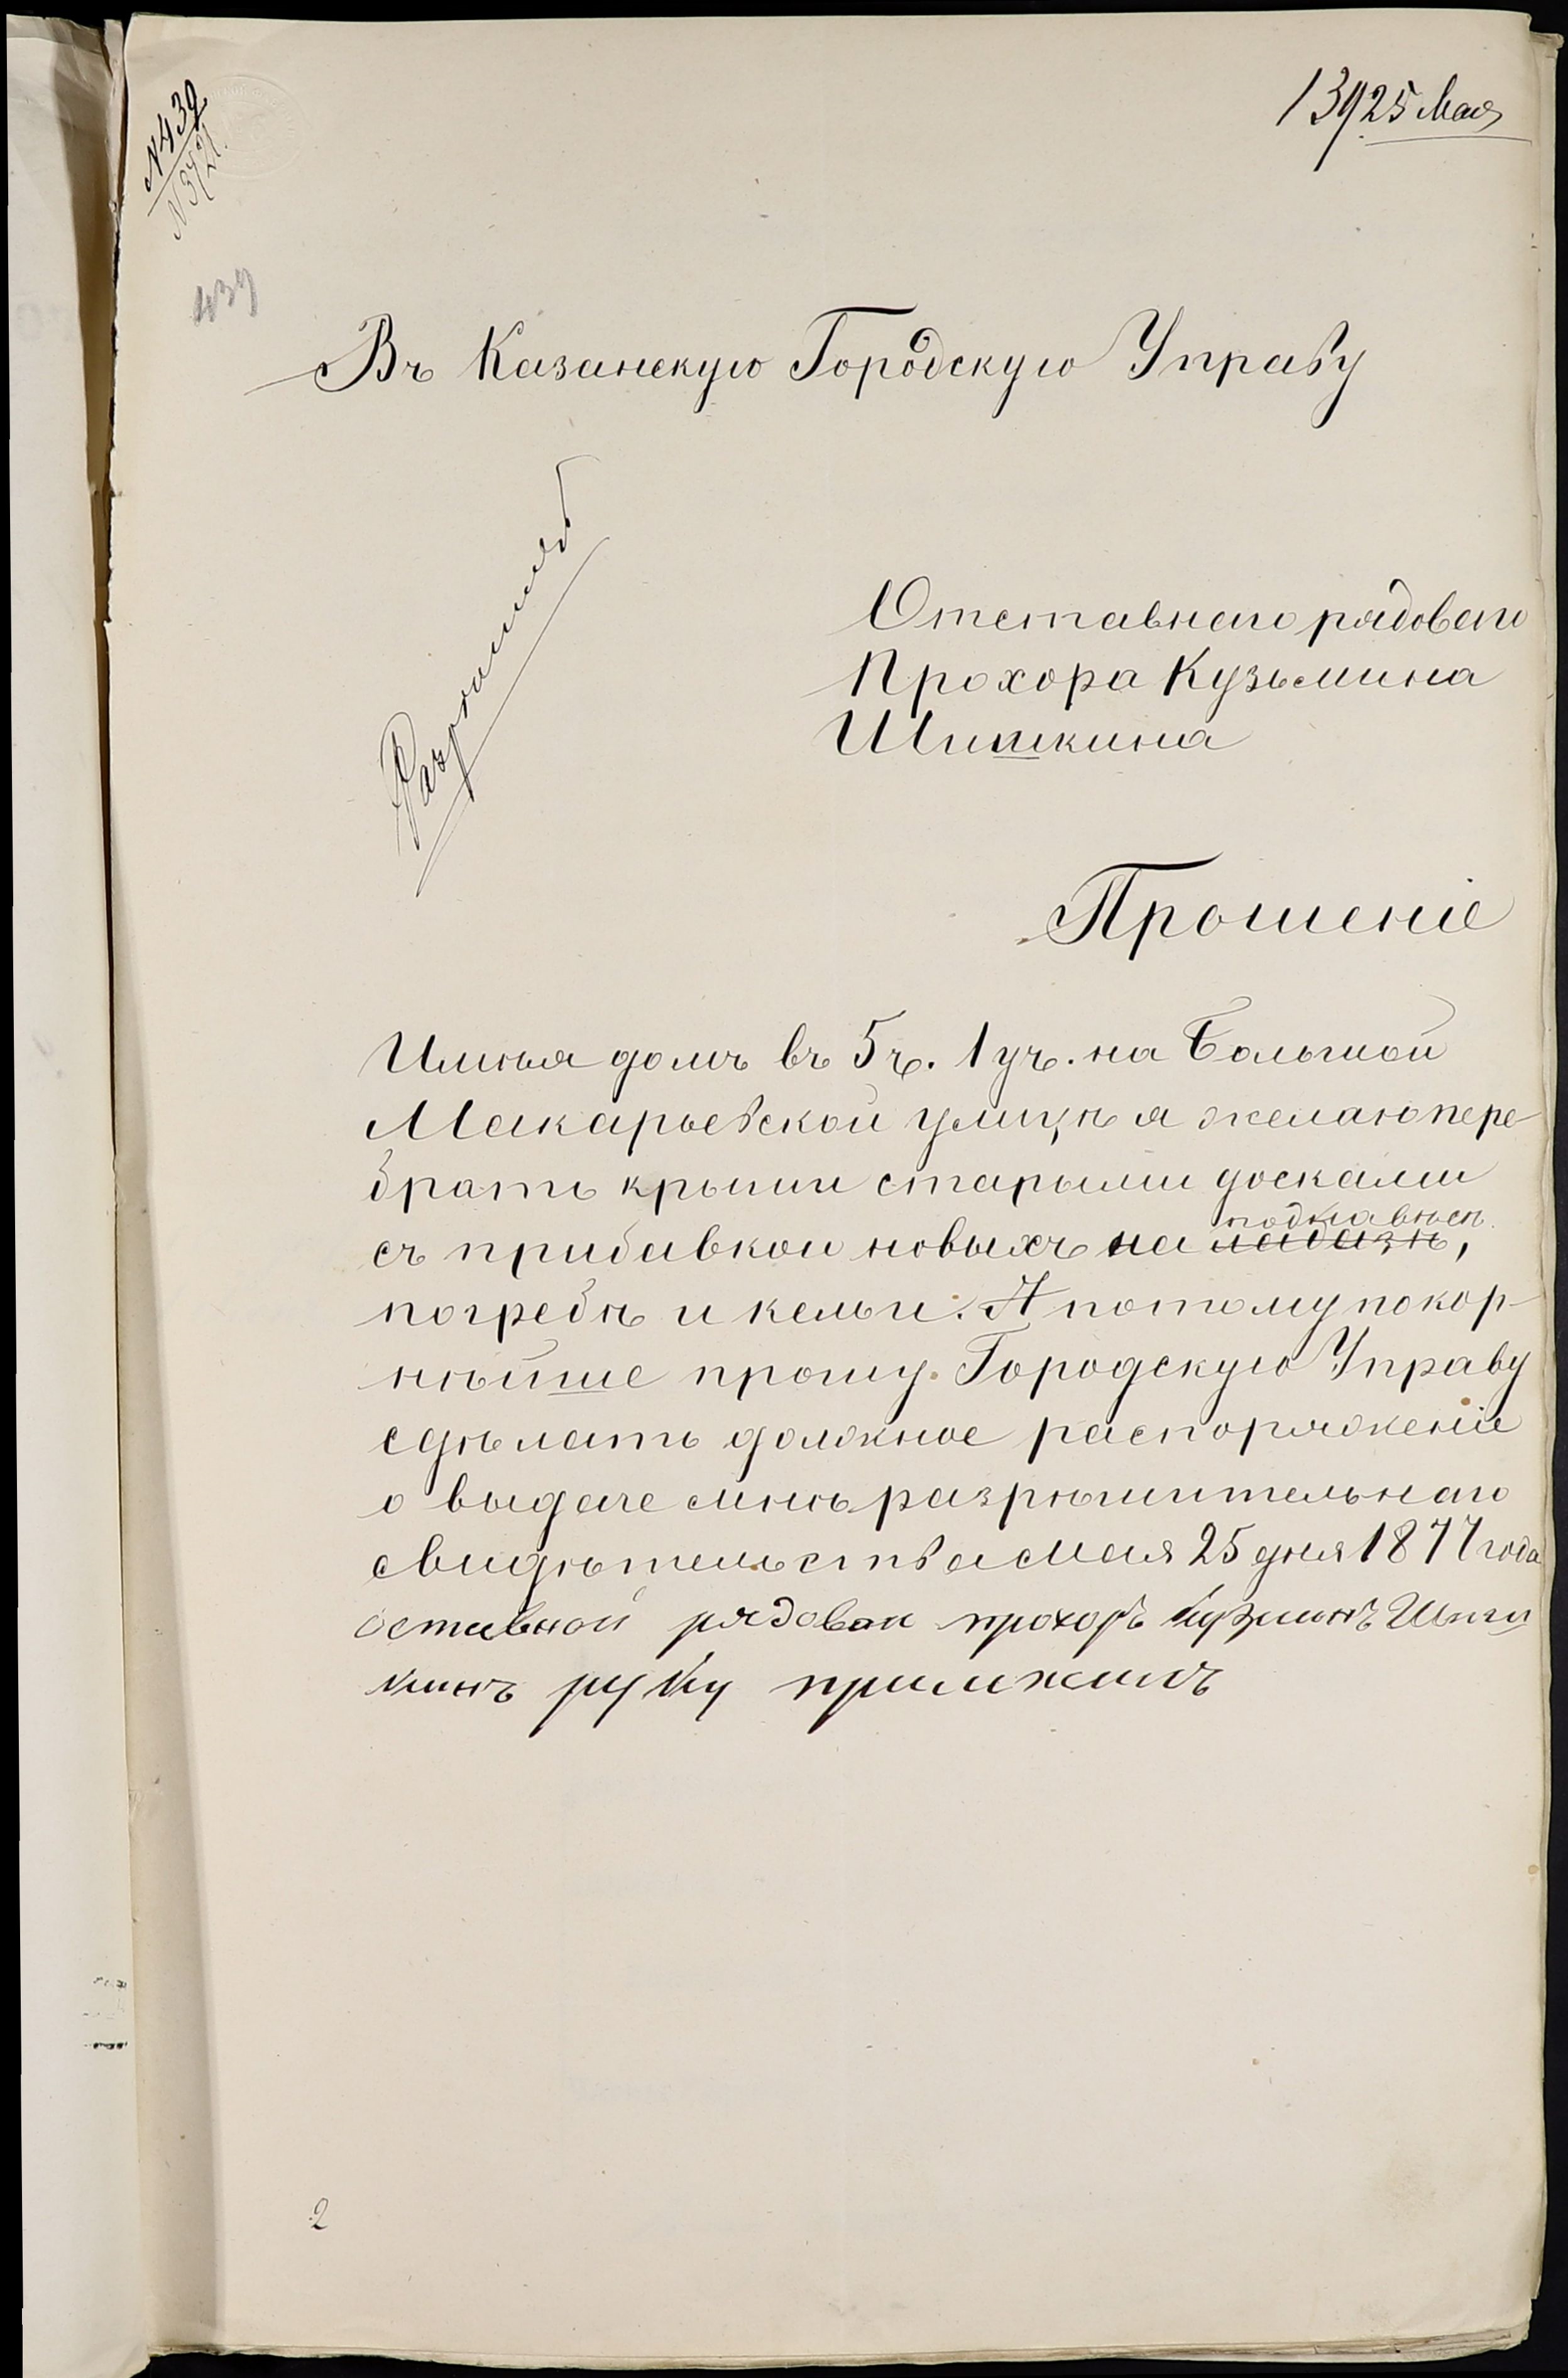 139 25 Мая
№ 439
№ 3721.
439
Въ Казанскую Городскую Управу
Разрѣшить
Отставнаго рядоваго
Прохора Кузьмина
Шишкина
Прошеніе
Имѣя домъ въ 5 ч. 1 уч. на Большой
Макарьевской улицѣ я желаю пере-
брать крыши старыми досками
подклавнѣсѣ
съ прибавкой новыхъ на лабазѣ,
погребѣ и кельи. А потому покор-
нѣйше прошу Городскую Управу
сдѣлать должное распоряженіе
о выдаче мнѣ разрѣшительнаго
свидѣтельства мая 25 дня 1877 года
оставной рядовои прохоръ кузминъ Шиш
кинъ руку приложилъ
2